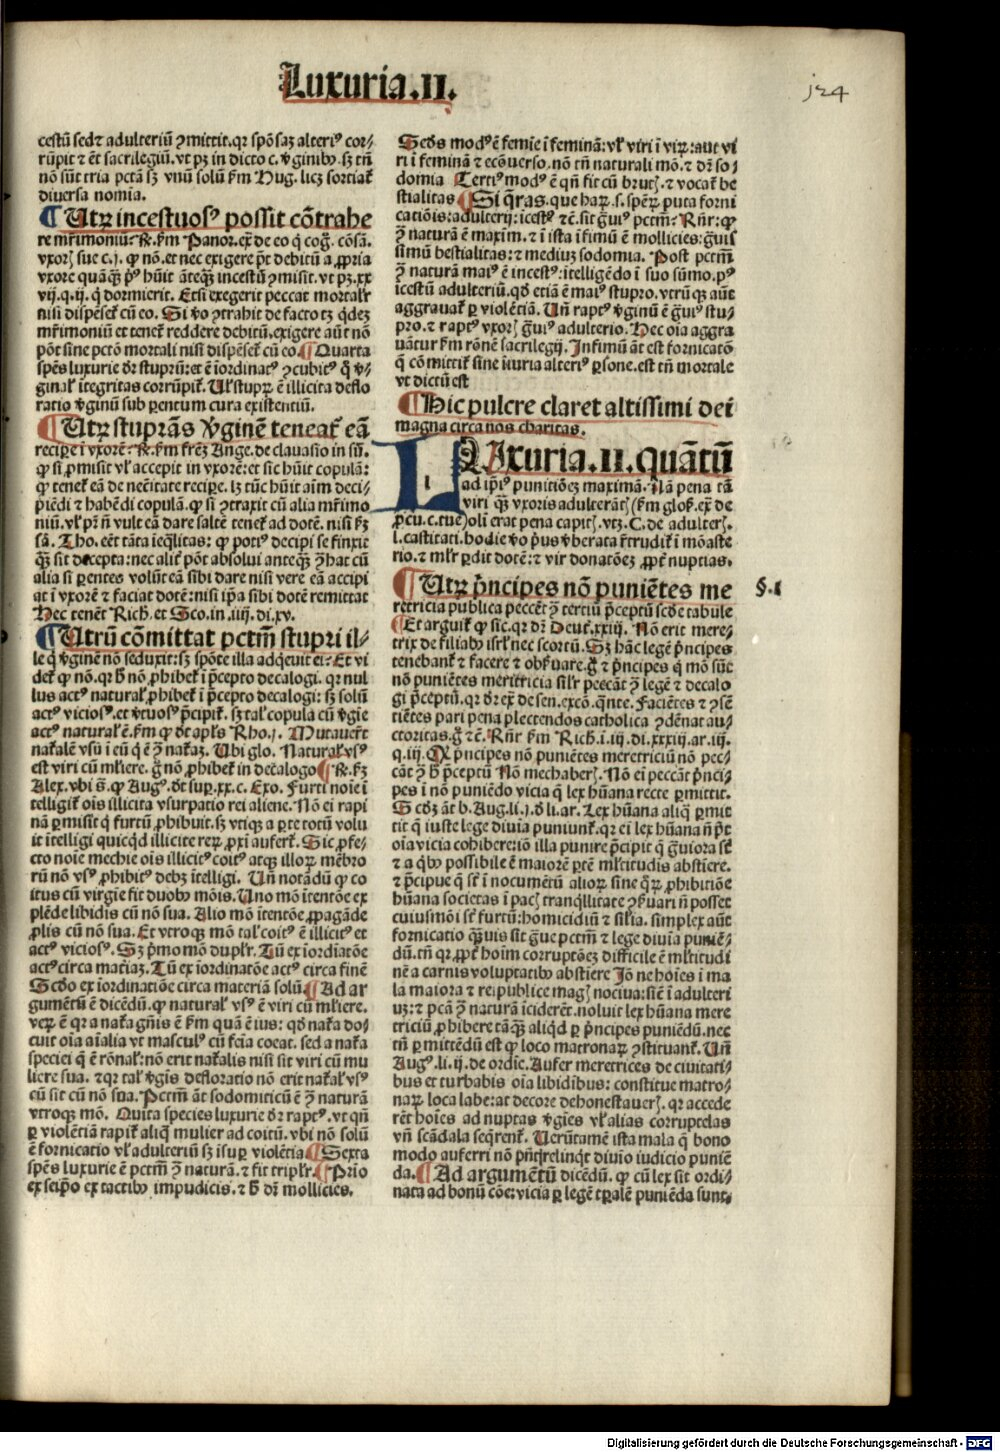 Luxuria.II.
124
cestū sedꝫ adulteriū ꝯmittit.qꝛ spōsaꝫ alteriꝰ cor⸗
rūpit ⁊ ēt sacrilegiū.vt pꝫ in dicto c.ꝟginibꝰ.sꝫ tn̄
nō sūt tria pctā sꝫ vnū solū ẜm Hug.licꝫ sortiat̄
diuersa nomia.
¶ Utꝝ incestuosꝰ possit cōtrahe
re mr̄imoniū.℞.ẜm Panor.ex̄ de eo q̇ coḡ.cōsā.
vxorꝭ sue c.j.ꝙ nō.et nec exigere pōt debitū a ꝓpria
vxore quāqꝫ pͥꝰ hūit āteqꝫ incestū ꝯmisit.vt pꝫ.xx
vij.q.ij.q̇ dormierit. Etsi exegerit peccat mortalr̄
nisi dispēset̄ cū eo. Si ꝟo ꝯtrahit de facto tꝫ q̇deꝫ
mr̄imoniū et tenet̄ reddere debitū.exigere aūt nō
pōt sine pctō mortali nisi dispēset̄ cū eo.¶Quarta
spēs luxurie dꝛ stuprū:et ē iordinatꝰ ꝯcubitꝰ q̇ ꝟ⸗
ginal̄ itegritas corrūpit̄. Ul̄ stupꝝ ē illicita deflo
ratio ꝟginū sub ꝑentum cura existentiū.
¶ Utꝝ stuprās ꝟginē teneat̄ eā
recipe i vxorē.℞.ẜm fr̄eꝫ Ange.de clauasio in sū.
ꝙ si ꝓmisit vl̄ accepit in vxorē:et sic hūit copulā:
ꝙ tenet̄ eā de necītate recipe. lꝫ tūc hūit aīm deci⸗
piēdi ⁊ habēdi copulā.ꝙ si ꝯtraxit cū alia mr̄imo
niū. vl̄ pr̄ n̄ vult eā dare saltē tenet̄ ad dotē.nisi ẜꝫ
sā.Tho.eēt tāta ieq̄litas: ꝙ potiꝰ decipi se finxit
qꝫ sit decepta:nec alit̄ pōt absolui anteqꝫ ꝯ̄hat cū
alia si ꝑentes volūt eā sibi dare nisi vere eā accipi
at i vxorē ⁊ faciat dotē:nisi ip̄a sibi dotē remittat
Hec tenēt Rich.et Sco.in.iiij.di.xv.
¶ Utrū cōmittat pctm̄ stupri il⸗
le q̇ ꝟginē nō seduxit:sꝫ spōte illa adq̄euit ei. Et vi
det̄ ꝙ nō.qꝛ h̄ nō ꝓhibet̄ i p̄cepto decalogi.qꝛ nul
lus actꝰ natural̄ ꝓhibet̄ i p̄cepto decalogi:sꝫ solū
actꝰ viciosꝰ.et ꝟtuosꝰ p̄cipit̄. sꝫ tal̄ copula cū ꝟgīe
actꝰ natural̄ ē.ẜm ꝙ dt apl̄s Rho.j. Mutauer̄t
nat̄alē vsū i eū q̇ ē ꝯ̄ nat̄aꝫ. Ubi glo. Natural̄ vsꝰ
est viri cū ml̄iere.g̊ nō ꝓhibet̄ in decalogo¶℞.ẜꝫ
Alex.vbi s̄.ꝙ Augꝰ.dt suꝑ.xx.c. Exo. Furti noīe i
telligit̄ ois illicita vsurpatio rei aliene. Nō ei rapi
nā ꝑmisit q̇ furtū ꝓhibuit.sꝫ vtiqꝫ a ꝑte totū volu
it itelligi quicq̇d illicite reꝝ ꝓxi aufert̄. Sic ꝓfe⸗
cto noīe mechie ois illicitꝰ coitꝰ atqꝫ illoꝝ mēbro
rū nō vsꝰ ꝓhibitꝰ debꝫ itelligi. Un̄ notādū ꝙ co
itus cū virgīe fit duobꝰ mōis. Uno mō itentōe ex
plēde libidis cū nō sua. Alio mō itentōe ꝓpagāde
ꝓlis cū nō sua. Et vtroqꝫ mō tal̄ coitꝰ ē illicitꝰ et
actꝰ viciosꝰ. Sꝫ p̄mo mō duplr̄. Tū ex iordiatōe
actꝰ circa mat̄iaꝫ. Tū ex iordinatōe actꝰ circa finē
Scdo ex iordinatiōe circa materiā solū.¶ Ad ar
gumētū ē dicēdū.ꝙ natural̄ vsꝰ ē viri cū ml̄iere.
veꝝ ē qꝛ a nat̄a gn̄is ē ẜm quā ē ius: qd̄ nat̄a do⸗
cuit oīa aīalia vt masculꝰ cū fēia coeat.sed a nat̄a
speciei q̄ ē rōnal̄:nō erit nat̄alis nisi sit viri cū mu
liere sua. ⁊qꝛ tal̄ ꝟgīs defloratio nō erit nat̄al̄ vsꝰ
cū sit cū nō sua. Pctm̄ āt sodomiticū ē ꝯ̄ naturā
vtroqꝫ mō. Quīta species luxurie dꝛ raptꝰ.vt qn̄
ꝑ violētiā rapit̄ aliq̄ mulier ad coitū.vbi nō solū
ē fornicatio vl̄ adulteriū sꝫ isuꝑ violētia.¶Sexta
spēs luxurie ē pctm̄ ꝯ̄ naturā.⁊ fit triplr̄.¶Prīo
ex seipo ex tactibꝰ impudicis.⁊ h̄ dꝛ mollicies.
Scd̄s modꝰ ē femīe i feminā:vl̄ viri i virꝝ:aut vi
ri i feminā ⁊ ecōuerso.nō tn̄ naturali mō.⁊ dꝛ so⸗
domia Tertiꝰ modꝰ ē qn̄ fit cū brutꝭ.⁊ vocat̄ be
stialitas ¶Si q̄ras.que haꝝ.s.speꝝ puta forni
catiōis:adulterij:icestꝰ ⁊c̄.sit g̊uiꝰ pctm̄: Rn̄r:ꝙ
ꝯ̄ naturā ē maxīm.⁊ i ista ifimū ē mollicies:g̊uis
simū bestialitas:⁊ mediuꝫ sodomia. Post pctm̄
ꝯ̄ naturā maiꝰ ē incestꝰ:itelligēdo i suo sūmo.pꝰ
icestū adulteriū.qd̄ etiā ē maiꝰ stupro.vtrūqꝫ aūt
aggrauat̄ ꝑ violētiā. Un̄ raptꝰ ꝟginū ē g̊uiꝰ stu⸗
pro.⁊ raptꝰ vxorꝭ g̊uiꝰ adulterio. Hec oīa aggra
uātur ẜm rōnē sacrilegij. Infimū āt est fornicatō
q̄ cōmittit̄ sine iuria alteriꝰ ꝑsone.est tn̄ mortale
vt dictū est
¶Hic pulcre claret altissimi dei
magna circa nos charitas.
LUxuria.II.quātū
ad ip̄iꝰ punitiōeꝫ maximā. Nā pena tā
viri qꝫ vxoris adulterātꝭ (ẜm glo.ex̄ de
ꝓcu.c.tue)oli erat pena capitꝭ.vtꝫ.C.de adulterꝭ.
l.castitati.hodie ꝟo pͥus ꝟberata r̄trudit̄ i mōaste
rio.⁊ ml̄r ꝑdit dotē:⁊ vir donatōeꝫ ꝓpt̄ nuptias.
¶ Utꝝ p̄ncipes nō puniētes me
§.1
retricia publica peccēt ꝯ̄ tertiū p̄ceptū scd̄e tabule
¶Et arguit̄ ꝙ sic.qꝛ dꝛ Deut̄.xxiij. Nō erit mere⸗
trix de filiabꝰ isrl̄ nec scortū. Sꝫ hāc legē p̄ncipes
tenebant̄ ⁊ facere ⁊ obẜuare.g̊ ⁊ p̄ncipes q̇ mō sūt
nō puniētes meritricia silr̄ peccāt ꝯ̄ legē ⁊ decalo
gi p̄ceptū.qꝛ dꝛ ex̄ de sen.excō.q̄nte. Faciētes ⁊ ꝯsē
tiētes pari pena plectendos catholica ꝯdēnat au⸗
ctoritas.g̊ ⁊c̄. Rn̄r ẜm Rich.i.iij.di.xxxiij.ar.iij.
q.iij. Q p̄ncipes nō puniētes meretriciū nō pec⸗
cāt ꝯ̄ h̄ p̄ceptū Nō mechaberꝭ. Nō ei peccāt p̄nci⸗
pes i nō puniēdo vicia q̄ lex hūana recte ꝑmittit.
Scdꝫ āt b.Aug.li.j.d̄ li.ar. Lex hūana aliq̄ ꝑmit
tit q̄ iuste lege diuia puniunt̄.qꝛ ei lex hūana n̄ pōt
oīa vicia cohibere:iō illa punire p̄cipit q̄ g̊uiora st̄
⁊ a q̇bꝰ possibile ē maiorē ꝑtē ml̄titudis abstiere.
⁊ p̄cipue q̄ st̄ i nocumētū alioꝝ sine q̇ꝝ ꝓhibitiōe
hūana societas i pacꝭ tranq̇llitate ꝯẜuari n̄ posset
cuiusmōi st̄ furtū:homicidiū ⁊ sil̄ia. simplex aūt
fornicatio qꝫuis sit g̊ue pctm̄ ⁊ lege diuia puniē⸗
dū.tn̄ qꝛ.ꝓpt̄ hoim corruptōeꝫ difficile ē ml̄titudi
nē a carnis voluptatibꝰ abstiere Jō ne hoīes i ma
la maiora ⁊ reipublice magꝭ nociua:siē i adulteri
uꝫ:⁊ pctā ꝯ̄ naturā iciderēt.noluit lex hūana mere
triciū ꝓhibere tāqꝫ aliq̇d ꝑ p̄ncipes puniēdū.nec
tn̄ ꝑmittēdū est ꝙ loco matronaꝝ ꝯstituant̄. Un̄
Augꝰ.li.ij.de ordīe. Aufer meretrices de ciuitati⸗
bus et turbabis oīa libidibus: constitue matro⸗
naꝝ loca labe:at decore dehonestauerꝭ. qꝛ accede
rēt hoīes ad nuptas ꝟgīes vl̄ alias corruptelas
vn̄ scādala seq̄rent̄. Uerūtamē ista mala q̄ bono
modo auferri nō pn̄t:relinq̄t diuīo iudicio puniē
da.¶ Ad argumētū dicēdū.ꝙ cū lex sit ordi⸗
nata ad bonū cōe:vicia ꝑ legē tꝑalē puniēda sunt.
Digitalisierung gefördert durch die Deutsche Forschungsgemeinschaft - DFG